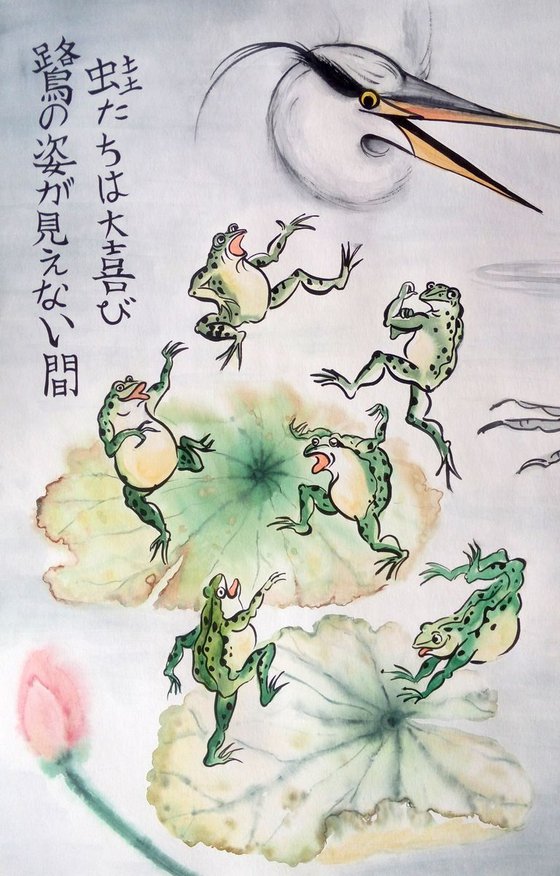 蛙たちは大喜び
鷺の姿が見えない間